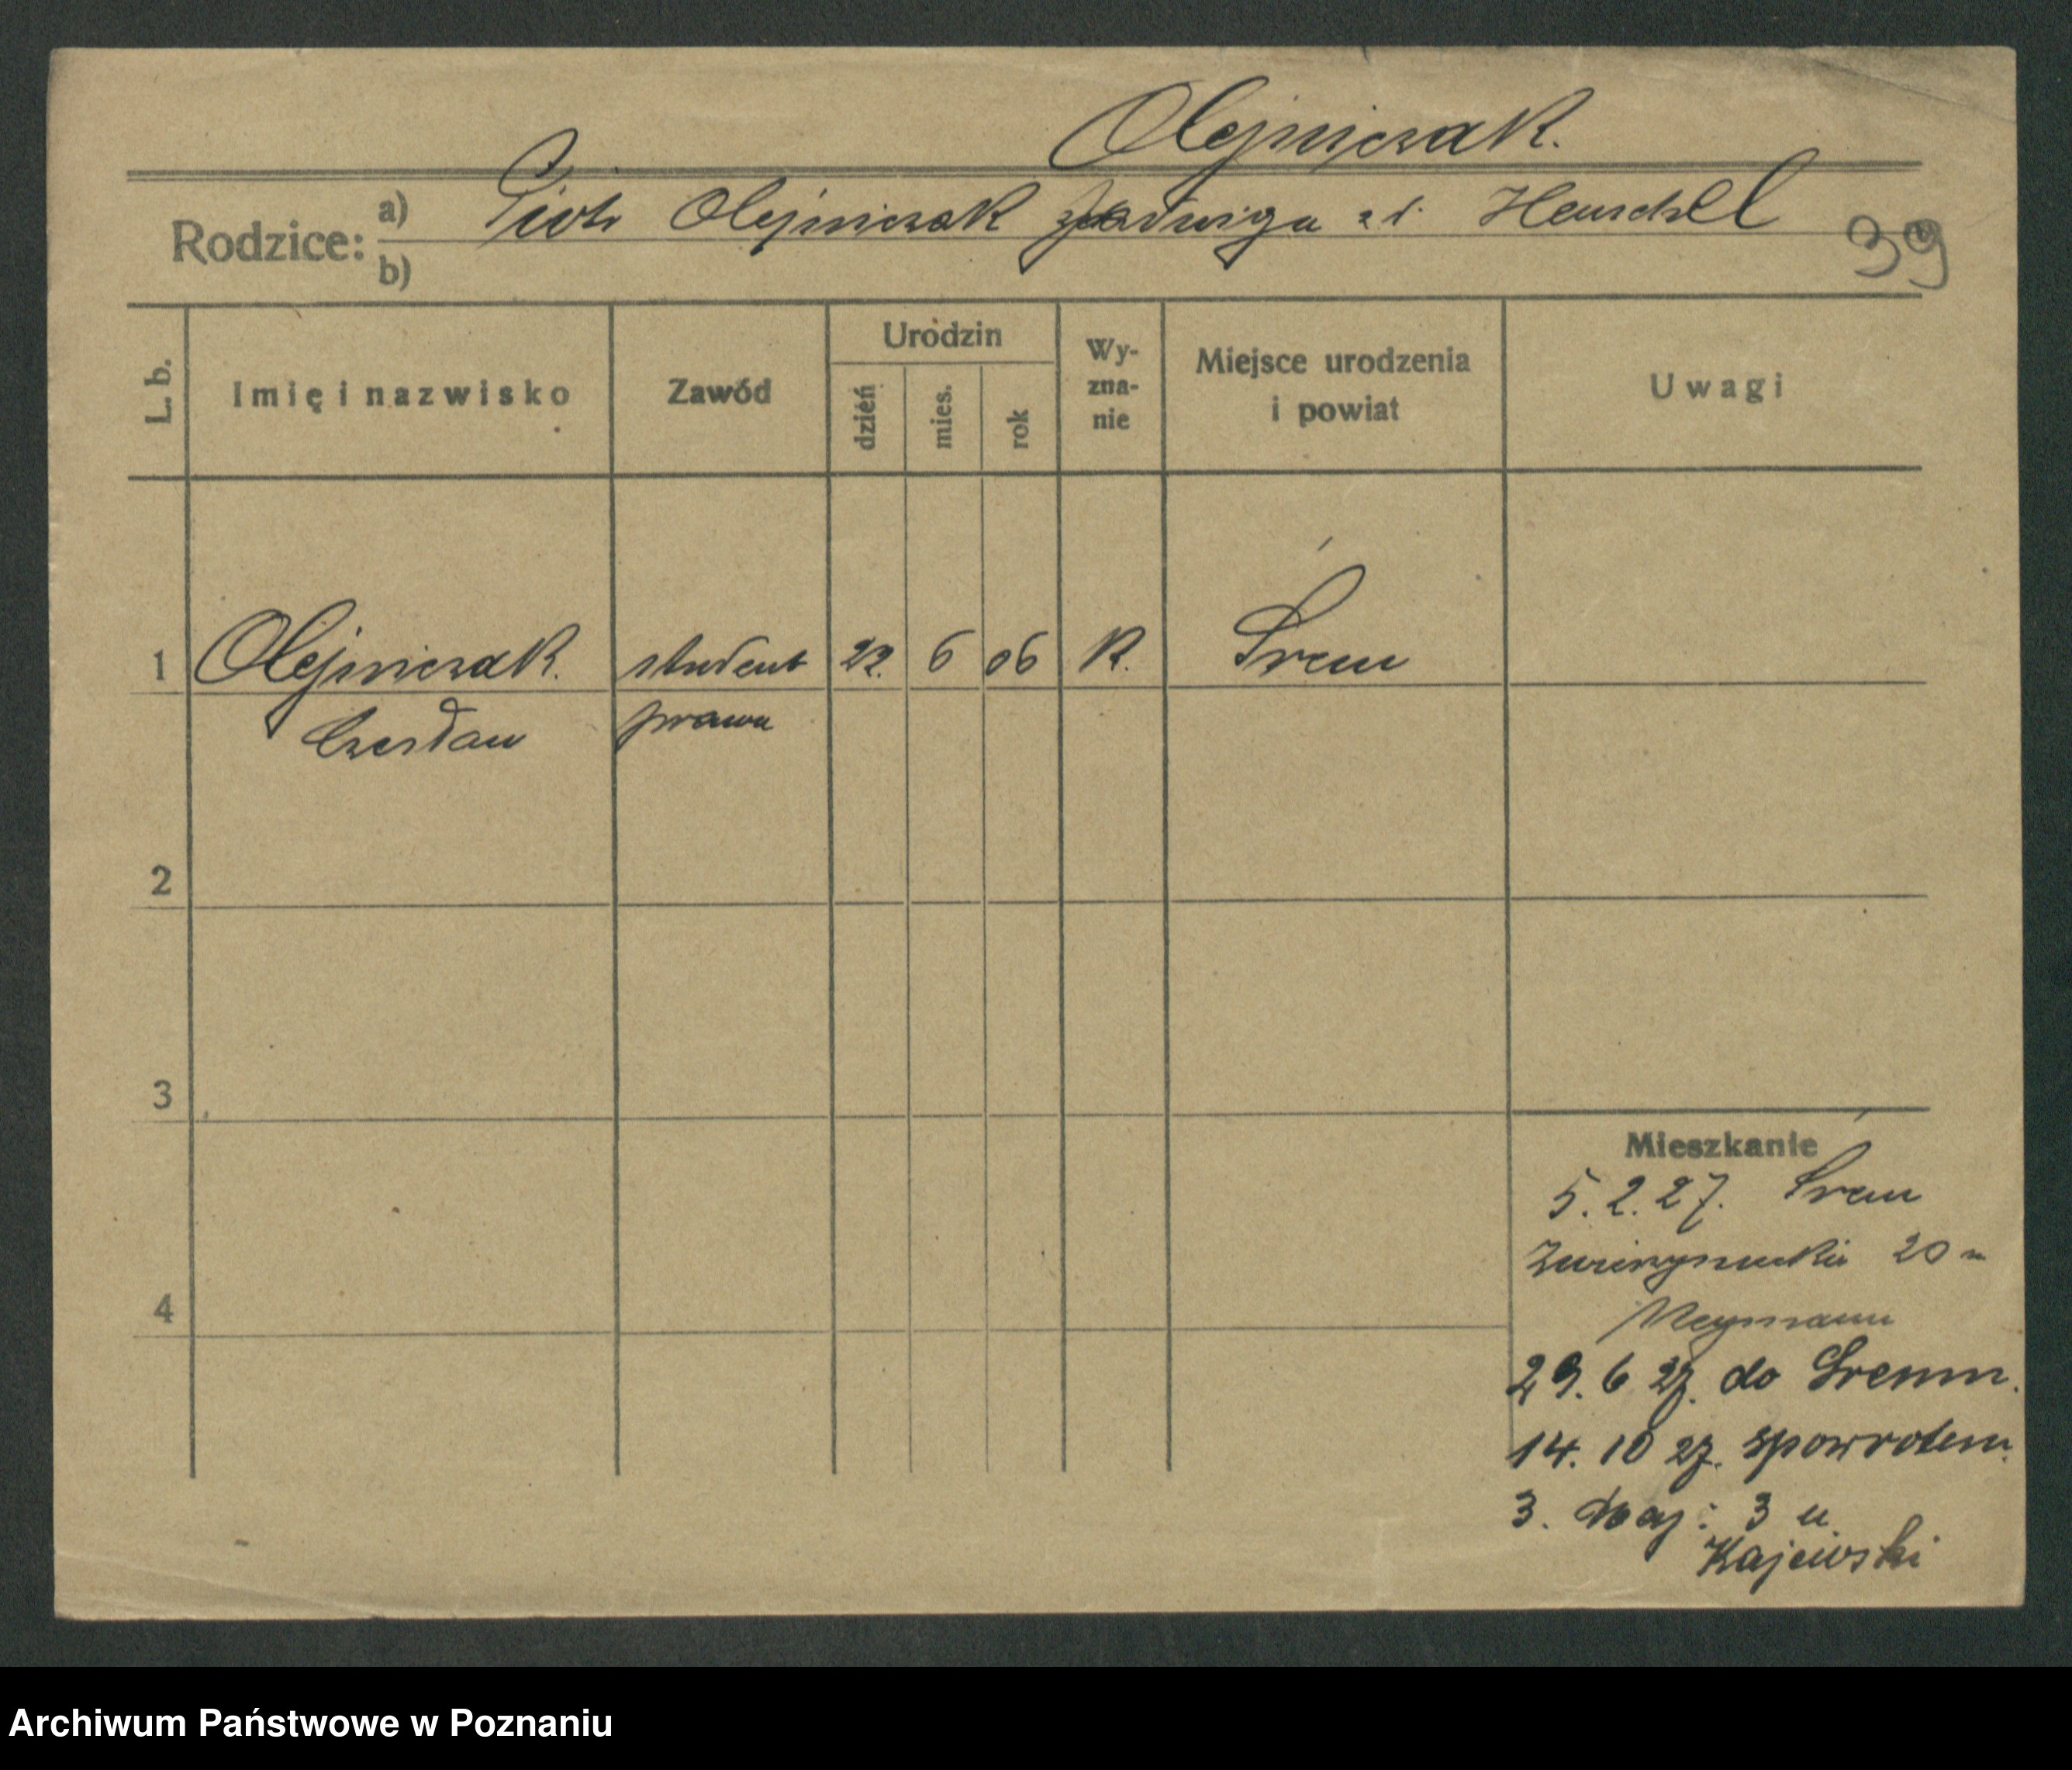 Olejniczak.
Rodzice: a) Piotr Olejniczak Jadwiga z d. Henschel
b)
39
L. b. Imię i nazwisko Zawód Urodzin dzień mies. rok Wy-zna-nie Miejsce urodzenia i powiat Uwagi
1 Olejniczak. student 22. 6 06 R. Śrem
Czesław prawa
2
3
Mieszkanie
5.2.27. Śrem
20
4
29. 6 27. do Śremu.
14. 10 27. spowrotem.
3. Maj: 3 u
Kajewski
Archiwum Państwowe w Poznaniu